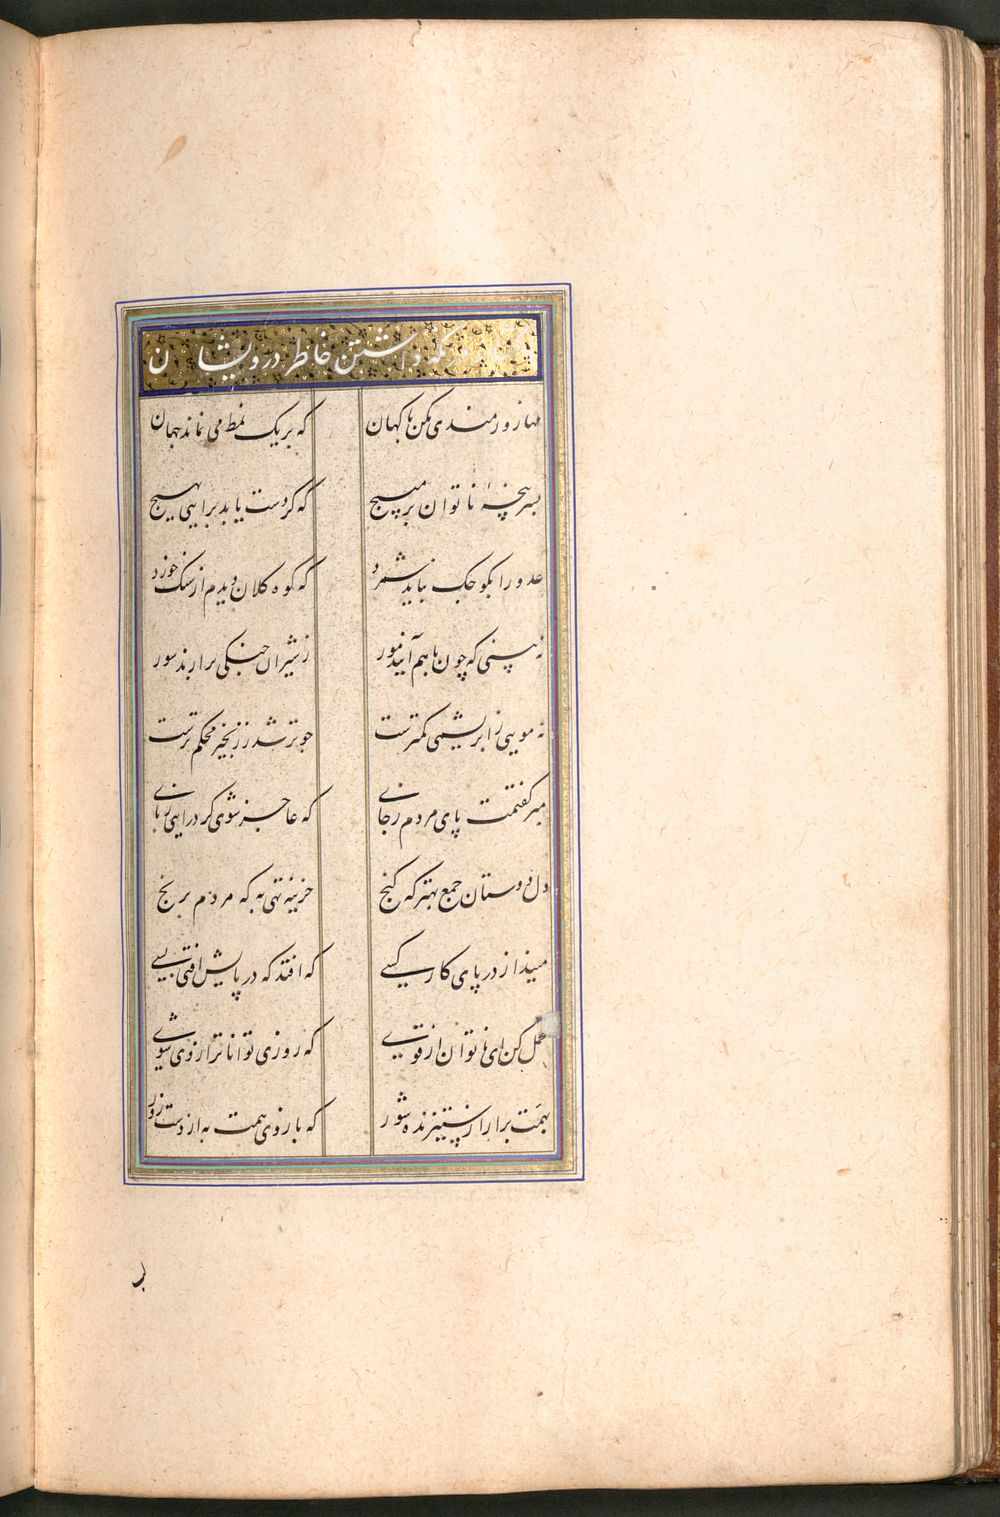 نگه داشتن خاطر درویشان
مها زورمندی مکن با کهان که بر یک نمط می نماند جهان
سر پنجهٔ ناتوان بر مپیچ که گر دست یابد برایی بهیچ
عدو را بکوچک نباید شمرد که کوه کلان دیدم از سنک خورد
نه بینی که چون با هم آیند مور ز شیران جنکی برآرند سور
نه مویی ز ابریشمی کمترست چو تر شد ز زنجیر محکم ترست
مبر کفتمت پای مردم ز جای که عاجز شوی کر درایی ز پای
دل دوستان جمع بهتر که کنج خزینه تهی به که مردم برنج
مینداز در پای کار کسی که افتد که در پایش افتی بسی
تحمل کن ای ناتوان از قوی که روزی تواناتر از وی شوی
بهمت برار از ستیزنده شور که بازوی همت به از دست زور
بر